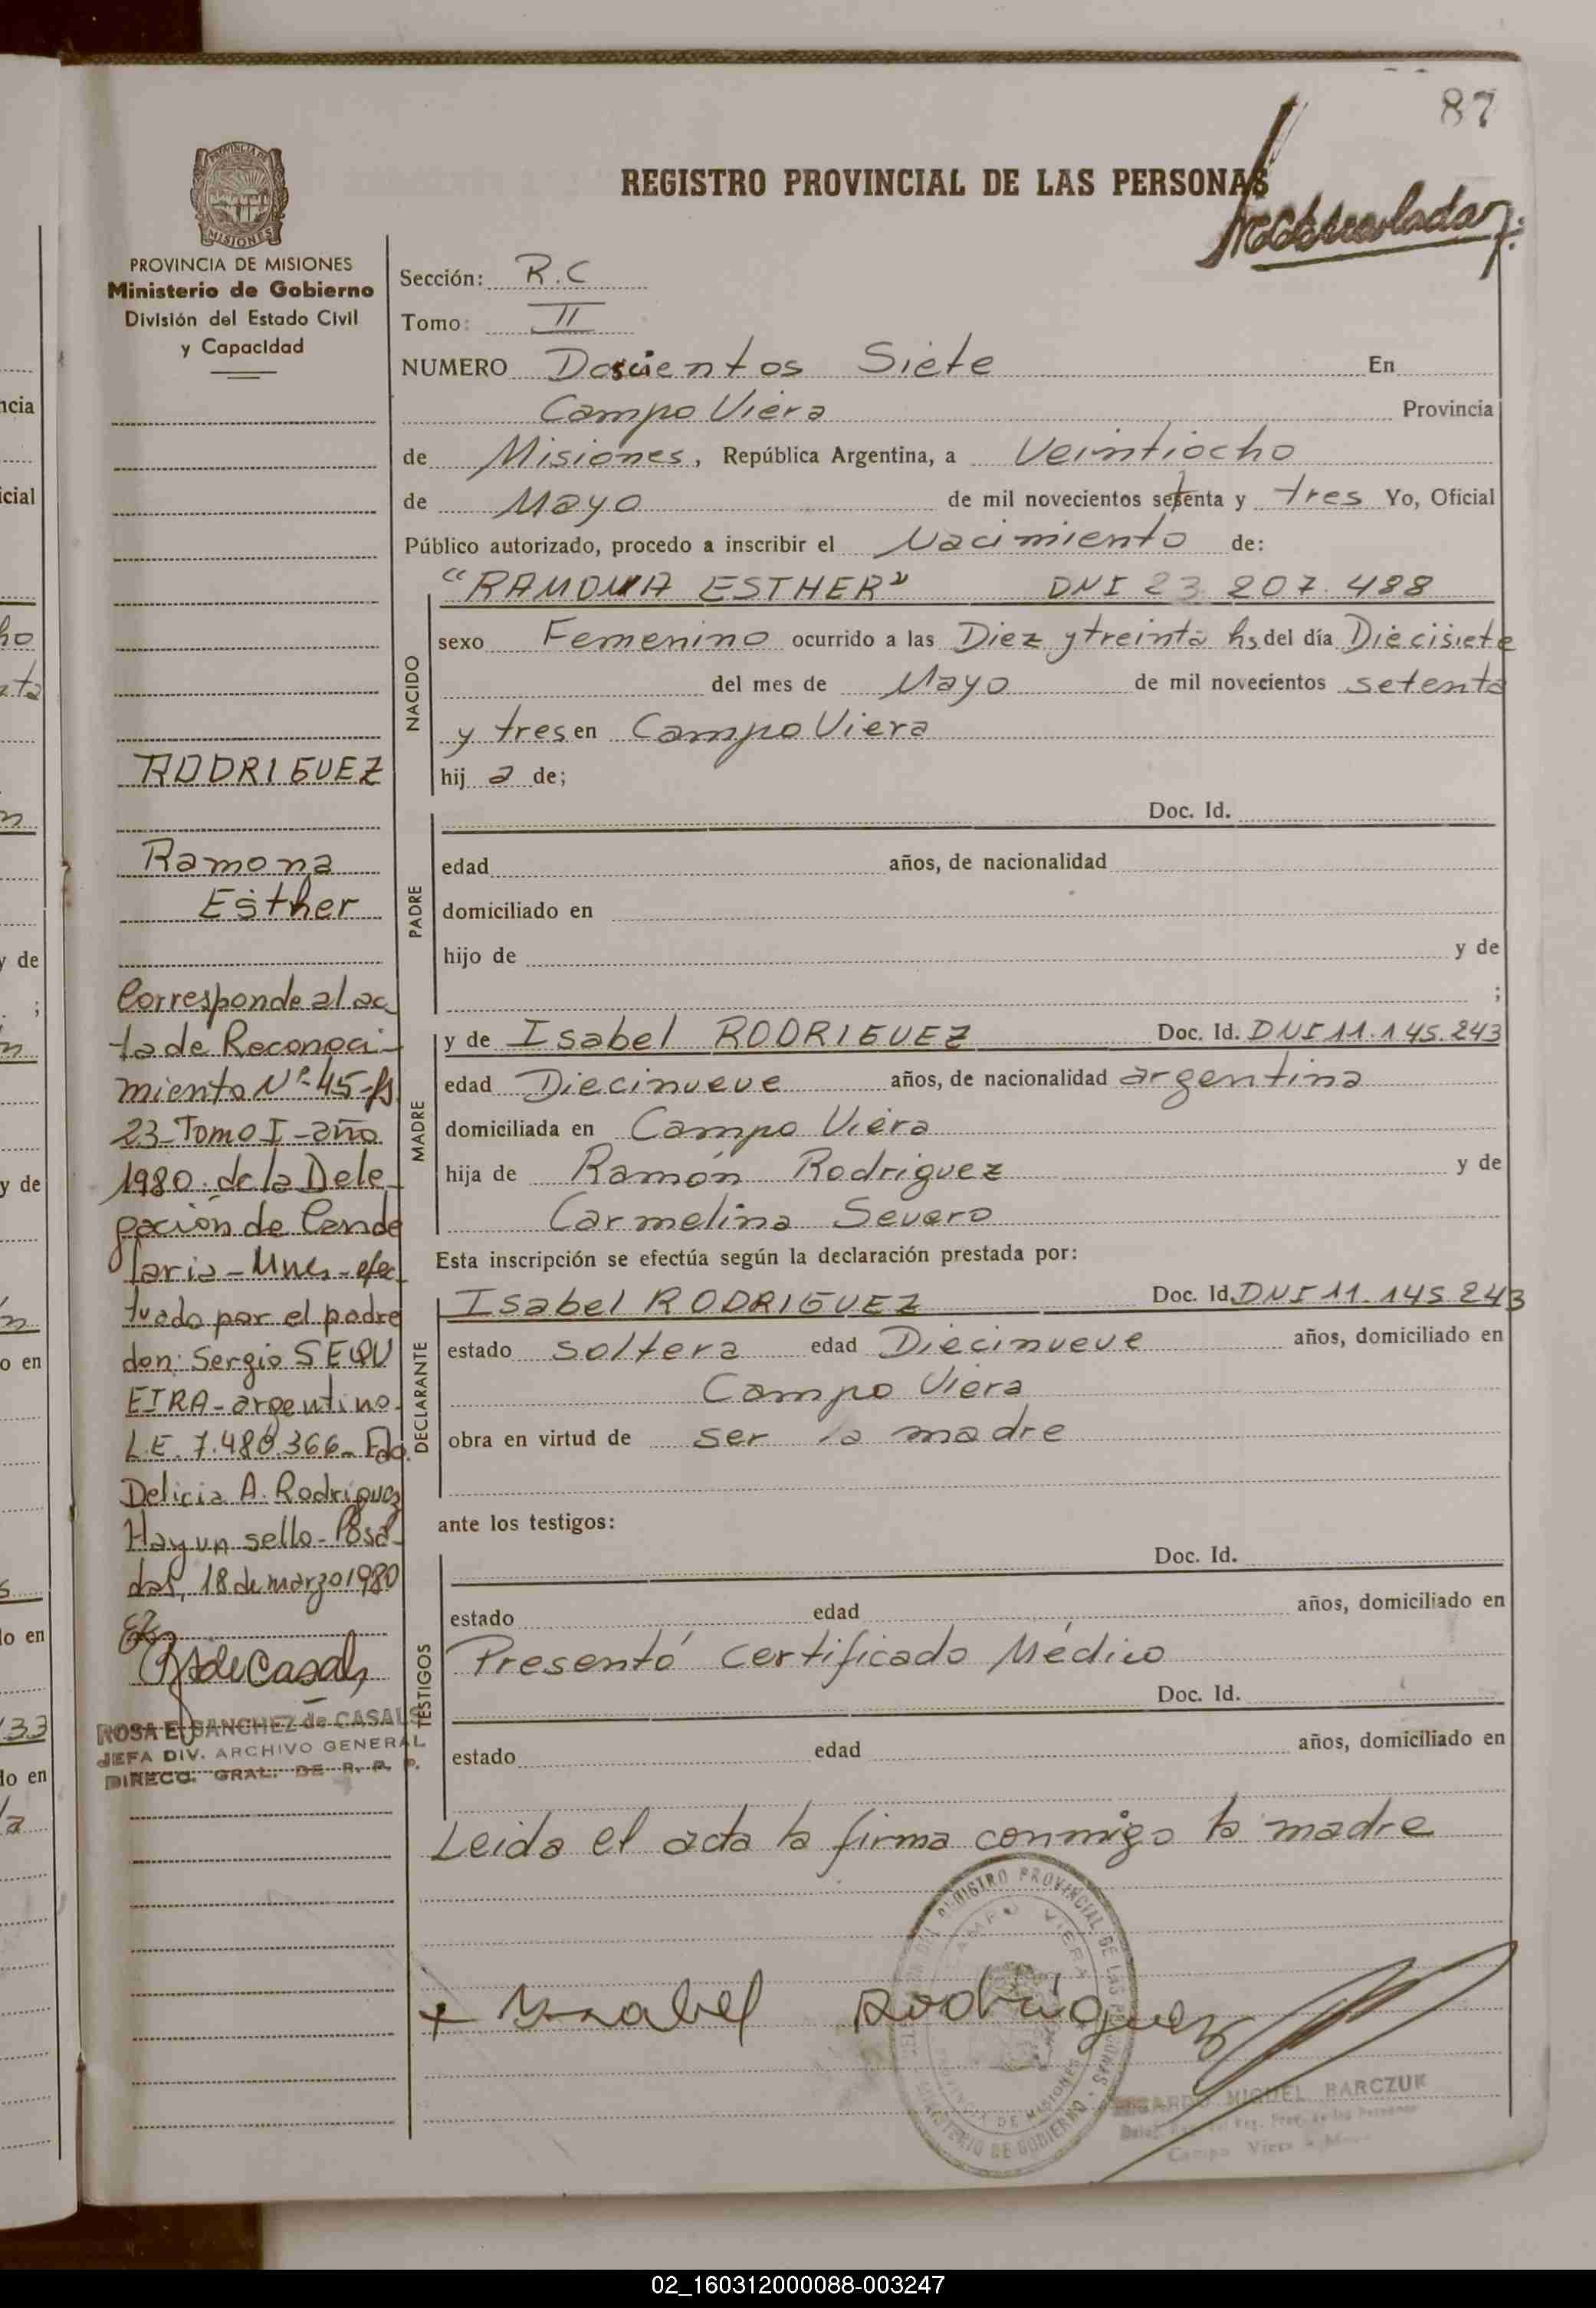 87
REGISTRO PROVINCIAL DE LAS PERSONAS
PROVINCIA DE
MISIONES
PROVINCIA DE MISIONES
Ministerio de Gobierno
División del Estado Civil
y Capacidad
RODRIGUEZ
Ramona
Esther
Corresponde al ac
ta de Reconoci-
miento Nº 45-fs
23-Tomo I-año
1980 de la Dele-
gación de Cande
laria-Mnes-efec
tuado por el padre
don: Sergio SEQU
EIRA-argentino-
L.E. 7.480.366-Fdo.
Delicia A. Rodriguez
Hay un sello-Posa-
das, 18 de marzo 1980
RSdeCasals
ROSA E. SANCHEZ de CASALS
JEFA DIV. ARCHIVO GENERAL
DIRECC. GRAL. DE R. P. P.
Sección: R.C
Tomo: II
NUMERO Doscientos Siete En
Campo Viera Provincia
de Misiones, República Argentina, a Veintiocho
de Mayo de mil novecientos setenta y tres Yo, Oficial
Público autorizado, procedo a inscribir el Nacimiento de:
NACIDO
"RAMONA ESTHER" DNI 23 207.488
sexo Femenino ocurrido a las Diez y treinta hs del día Diecisiete
del mes de Mayo de mil novecientos setenta
y tres en Campo Viera
hij a de;
PADRE
Doc. Id.
edad años, de nacionalidad
domiciliado en
hijo de y de
;
MADRE
y de Isabel RODRIGUEZ Doc. Id. DNI 11.145.243
edad Diecinueve años, de nacionalidad argentina
domiciliada en Campo Viera
hija de Ramón Rodriguez y de
Carmelina Severo
Esta inscripción se efectúa según la declaración prestada por:
DECLARANTE
Isabel RODRIGUEZ Doc. Id. DNI 11.145 243
estado soltera edad Diecinueve años, domiciliado en
Campo Viera
obra en virtud de ser la madre
ante los testigos:
TESTIGOS
Doc. Id.
estado edad años, domiciliado en
Presentó Certificado Médico
Doc. Id.
estado edad años, domiciliado en
Leida el acta la firma conmigo la madre
REGISTRO PROVINCIAL DE LAS PERSONAS
CAMPO VIERA
PROVINCIA DE MISIONES
MINISTERIO DE GOBIERNO
+ Ysabel Rodriguez
MIGUEL BARCZUK
Campo Viera
02_160312000088-003247